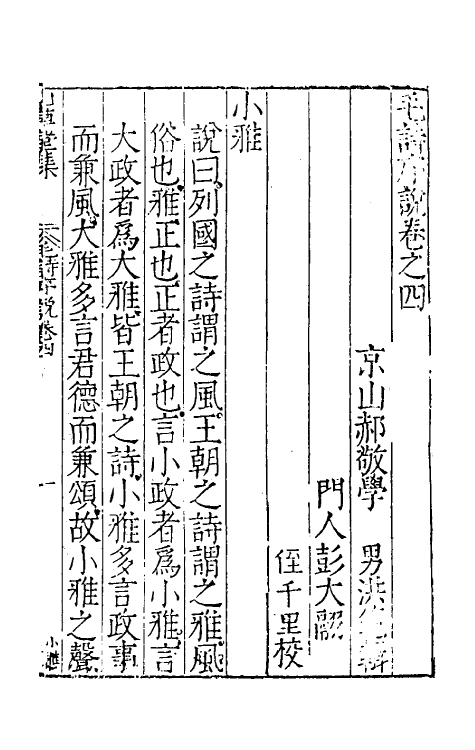 毛詩序說卷之四
京山郝敬學　男洪範輯
門人彭大翮
侄千里校
小雅
說曰列國之詩謂之風王朝之詩謂之雅風
俗也雅正也正者政也言小政者為小雅言
大政者為大雅皆王朝之詩小雅多言政事
而兼風大雅多言君德而兼頌故小雅之聲
山草堂集　毛詩序說卷四　一　小雅